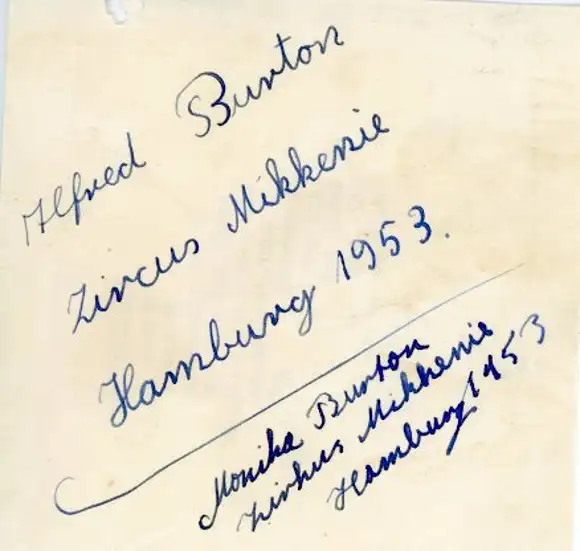 Alfred Burton
Zircus Mikkenie
Hamburg 1953.
Monika Burton
Zirkus Mikkenie
Hamburg 1953